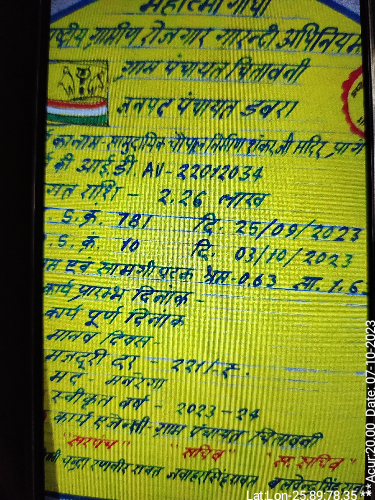 महात्मा गांधी
राष्ट्रीय ग्रामीण रोजगार गारन्टी अधिनियम
ग्राम पंचायत चितावनी
जनपद पंचायत डबरा
का नाम- सामुदायिक चौपाल निर्माण शंकर जी मंदिर
की आई.डी. AV- 22012034
राशि - 2.26 लाख
स.क्रं. 781 दि. 25/09/2023
.स.क्रं. 10 दि. 03/10/2023
एवं सामग्री परक श्रम-0.63 सा. 1.6
कार्य प्रारम्भ दिनांक -
कार्य पूर्ण दिनांक
मानव दिवस-
मजदूरी दर - 221/-रु.
मद - मनरेगा
स्वीकृत वर्ष - 2023-24
कार्य एजेन्सी- ग्राम पंचायत चितावनी
"सरपंच" "सचिव" "स. सचिव"
रणवीर रावत जवाहर सिंह रावत बलवेन्द्र सिंह
Lat Lon-25.89:78.35 ** Acur:20.00 Date: 07-10-2023